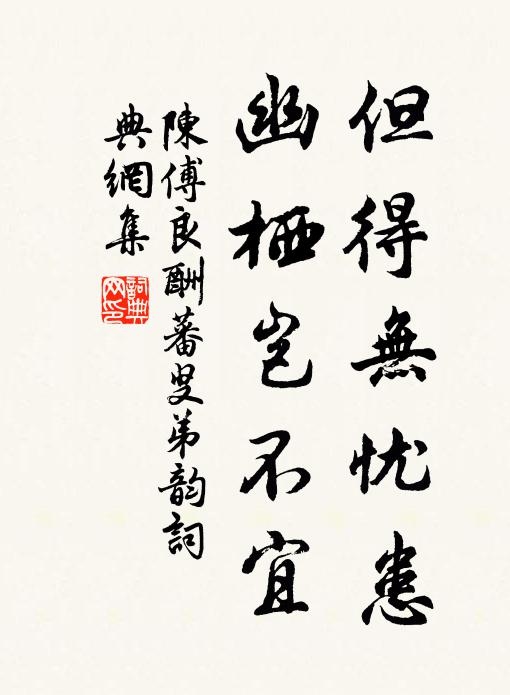 但得無忧患
幽栖岂不宜
陳傅良酬蕃叟弟韵詞
典網集
詞典
网印